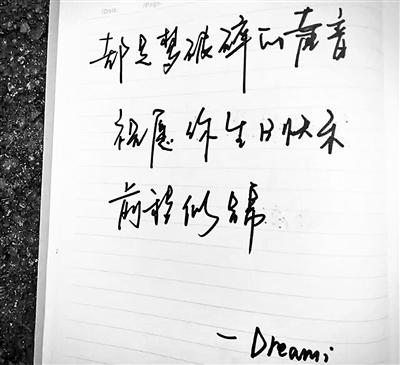 都是梦破碎的声音
祝愿你生日快乐
前程似锦
— Dreami